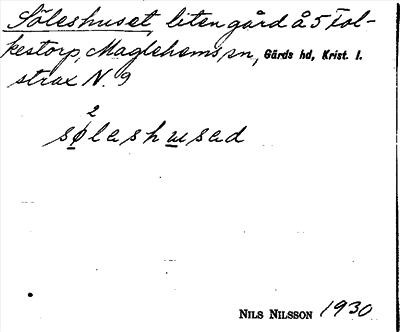 Söleshuset, liten gård å 5 Fol-
kestorp, Maglehems sn, Gärds hd, Krist. l.
strax N. 9
2
søleshused
NILS NILSSON 1930